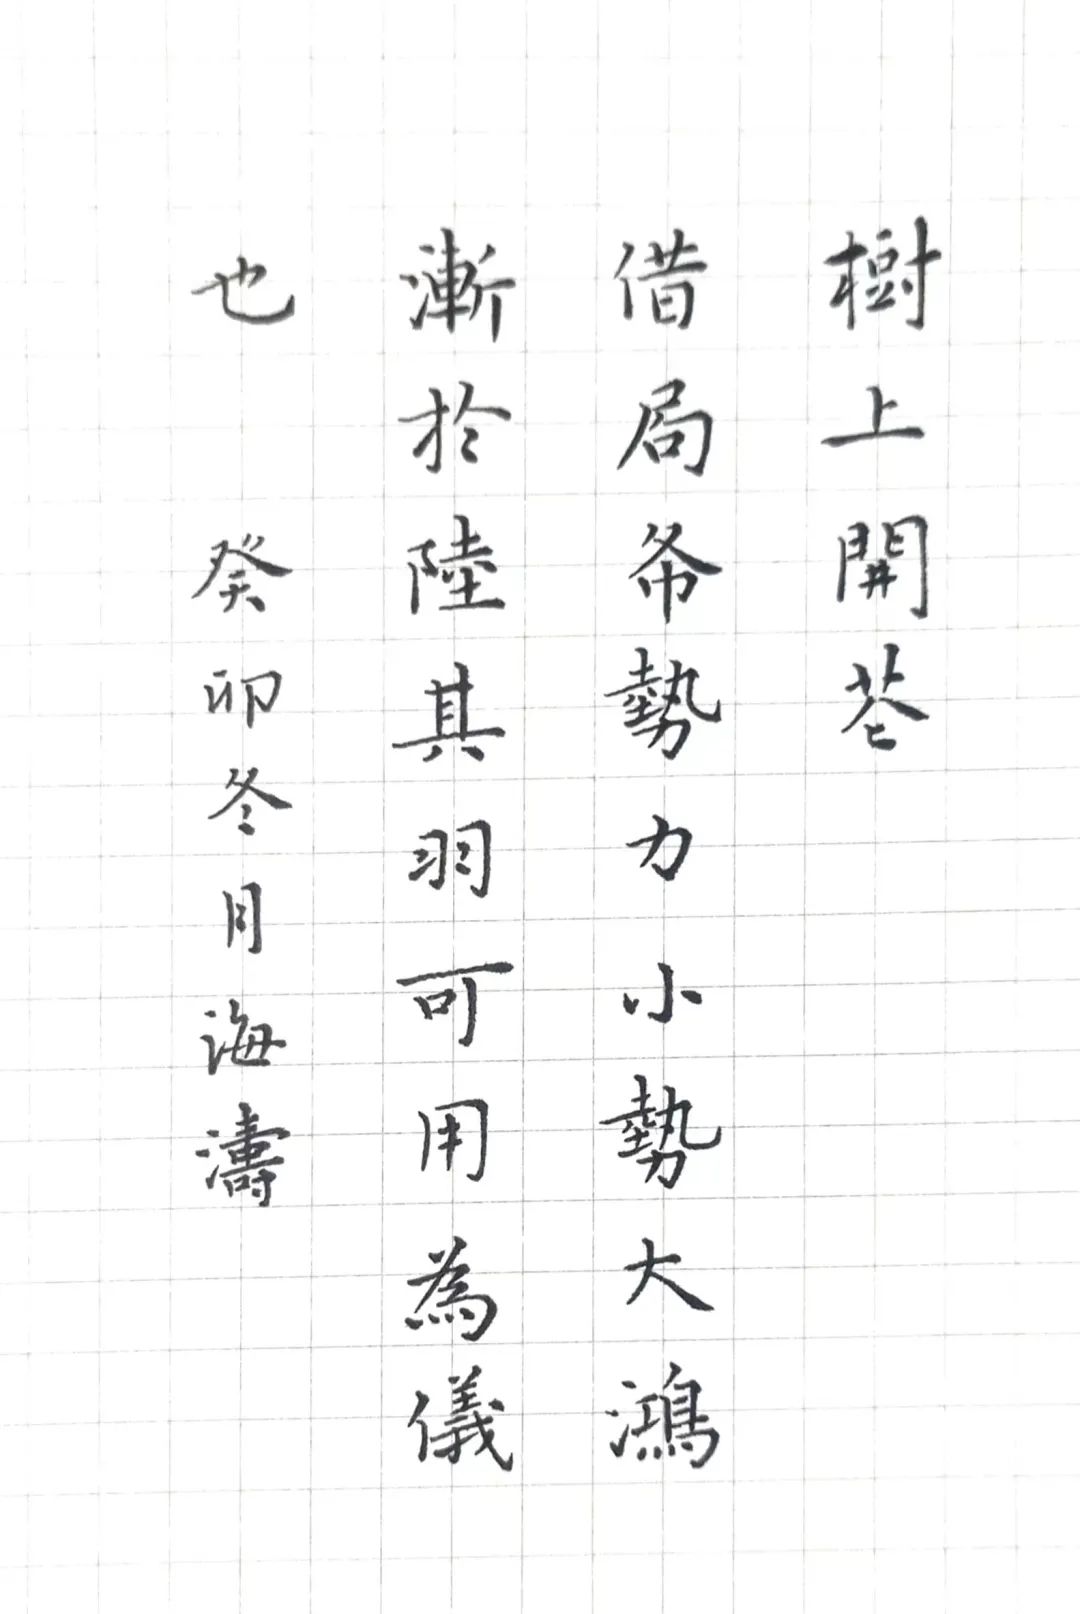 樹上開花
借局布勢力小勢大鴻
漸於陸其羽可用為儀
也 癸卯冬月海濤